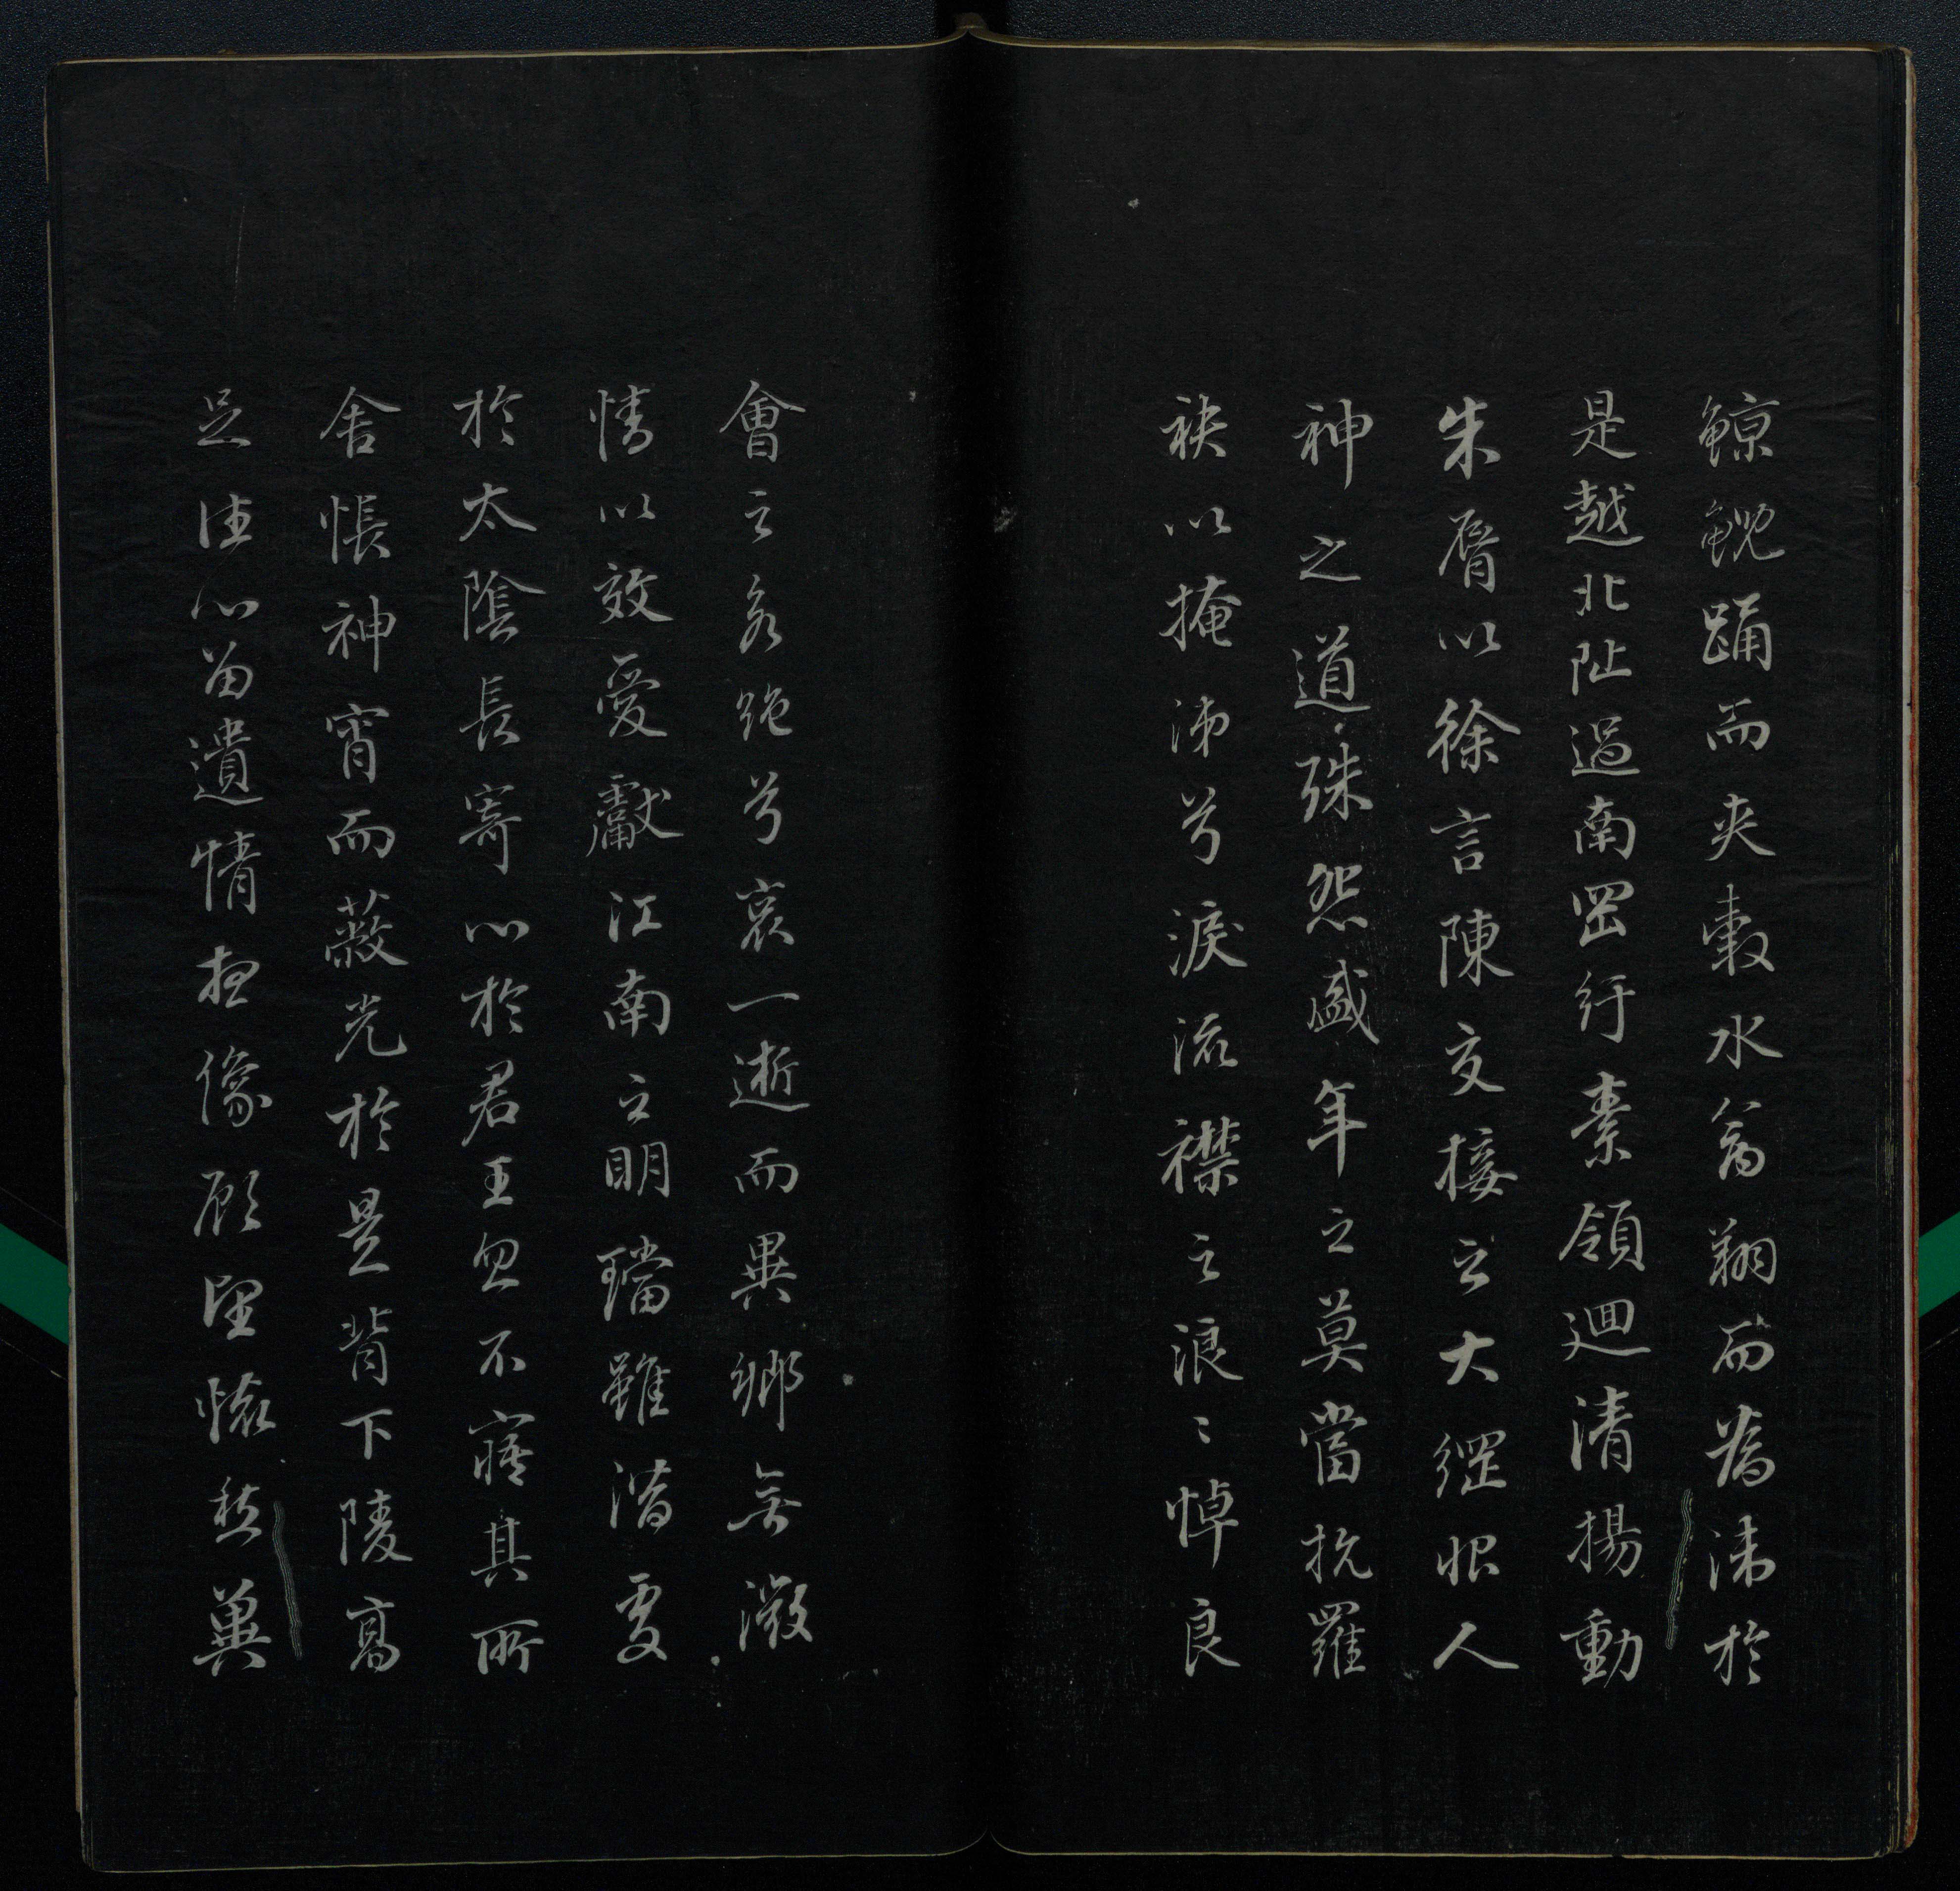 鯨鯢踊而夾轂水禽翔而為沛於
是越北阯過南岡紆素領迴清揚動
朱脣以徐言陳交接之大綱恨人
神之道殊怨盛年之莫當抗羅
袂以掩涕兮淚流襟之浪〻悼良
會之永絶兮哀一逝而異鄉無微
情以效愛獻江南之明璫雖潛處
於太陰長寄心於君王忽不寤其所
舍悵神宵而蔽光於是背下陵高
足往心留遺情想像顧望懷愁冀